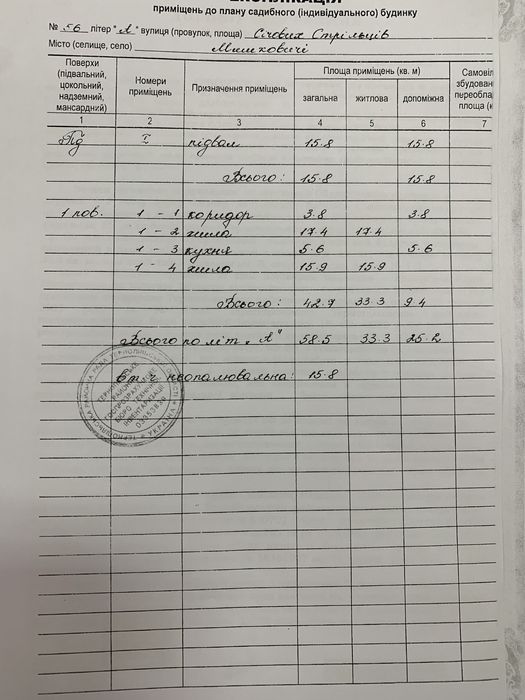 ЕКСПЛІКАЦІЯ
приміщень до плану садибного (індивідуального) будинку
№ 56 літер "А" вулиця (провулок, площа) Січових Стрільців
Місто (селище, село) Мишковичі
Поверхи (підвальний, цокольний, надземний, мансардний) Номери приміщень Призначення приміщень Площа приміщень (кв. м) загальна житлова допоміжна
1 2 3 4 5 6 7
Пд I підвал 15.8 15.8
Всього: 15.8 15.8
1 пов. 1 - 1 коридор 3.8 3.8
1 - 2 житло 17.4 17.4
1 - 3 кухня 5.6 5.6
1 - 4 житло 15.9 15.9
Всього: 42.7 33.3 9.4
Всього по літ. „А" 58.5 33.3 25.2
в т.ч. неопалювальна: 15.8